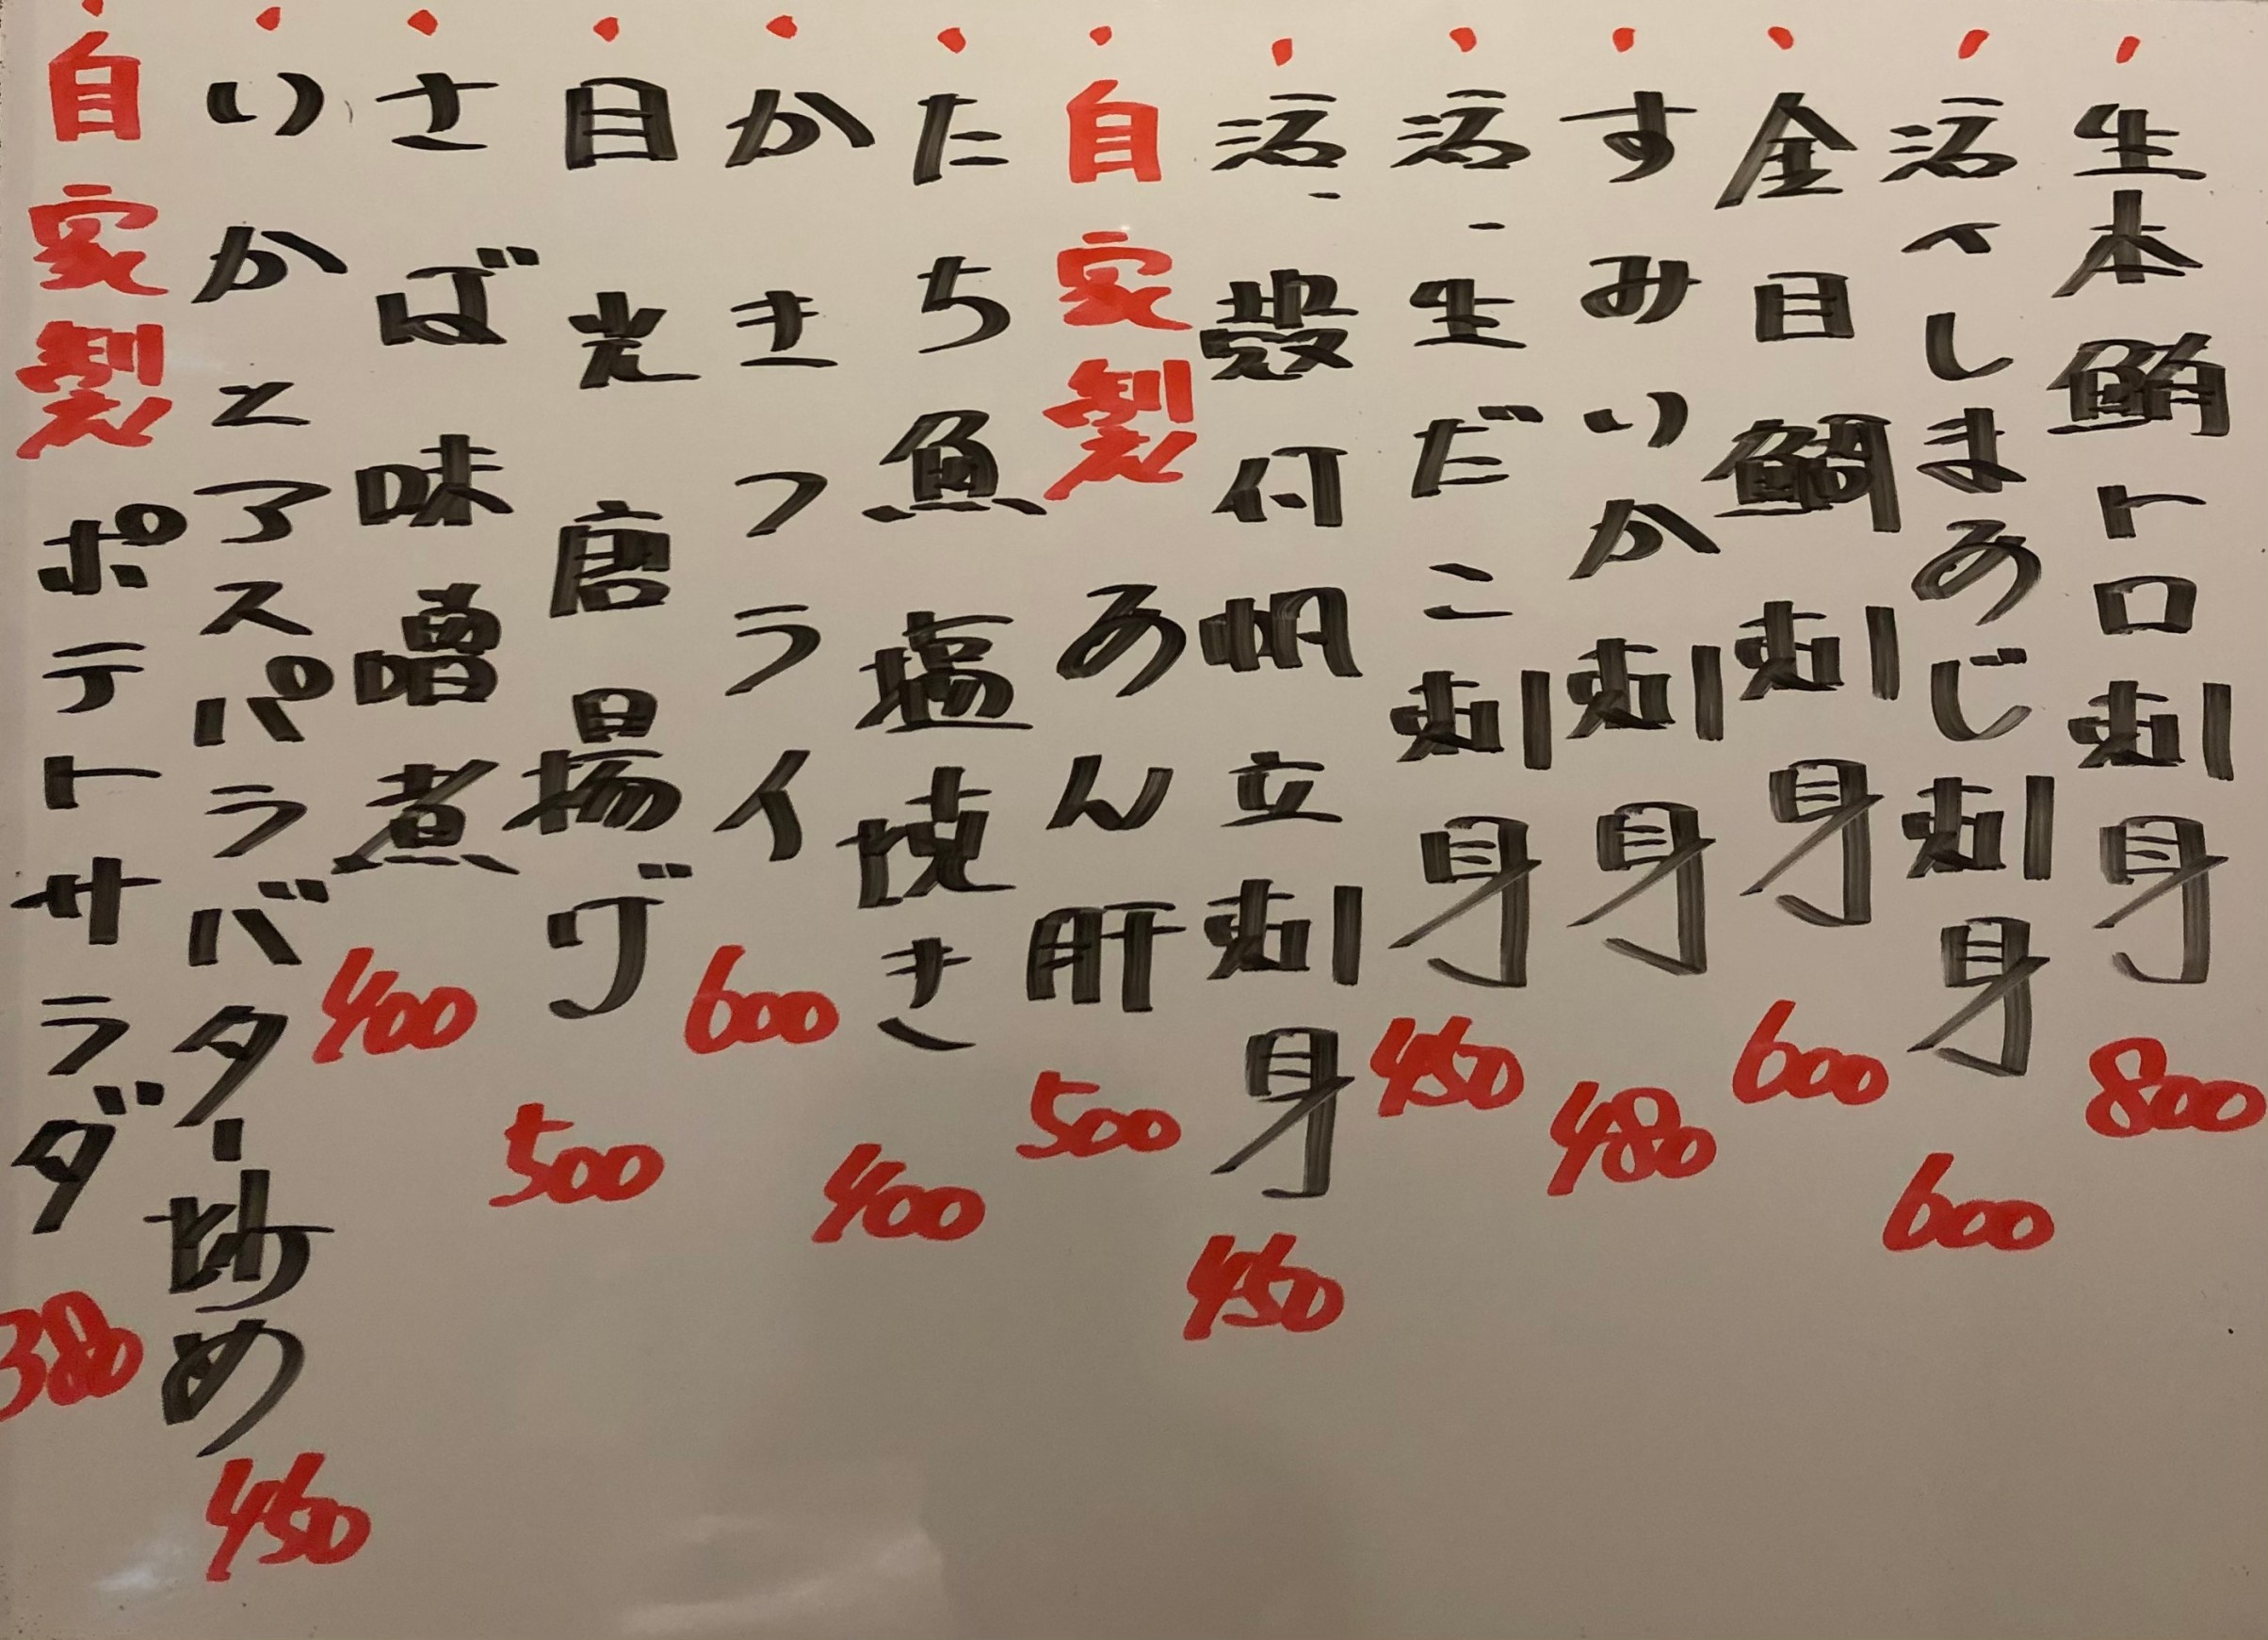 ・生本鮪トロ刺身 800
・活〆しまあじ刺身 600
・金目鯛刺身 600
・すみいか刺身 480
・活・生だこ刺身 450
・活・殻付帆立刺身 450
・自家製あん肝 500
・たち魚塩焼き 400
・かきフライ 600
・目光唐揚げ 500
・さば味噌煮 400
・いかとアスパラバター炒め 450
・自家製ポテトサラダ 380